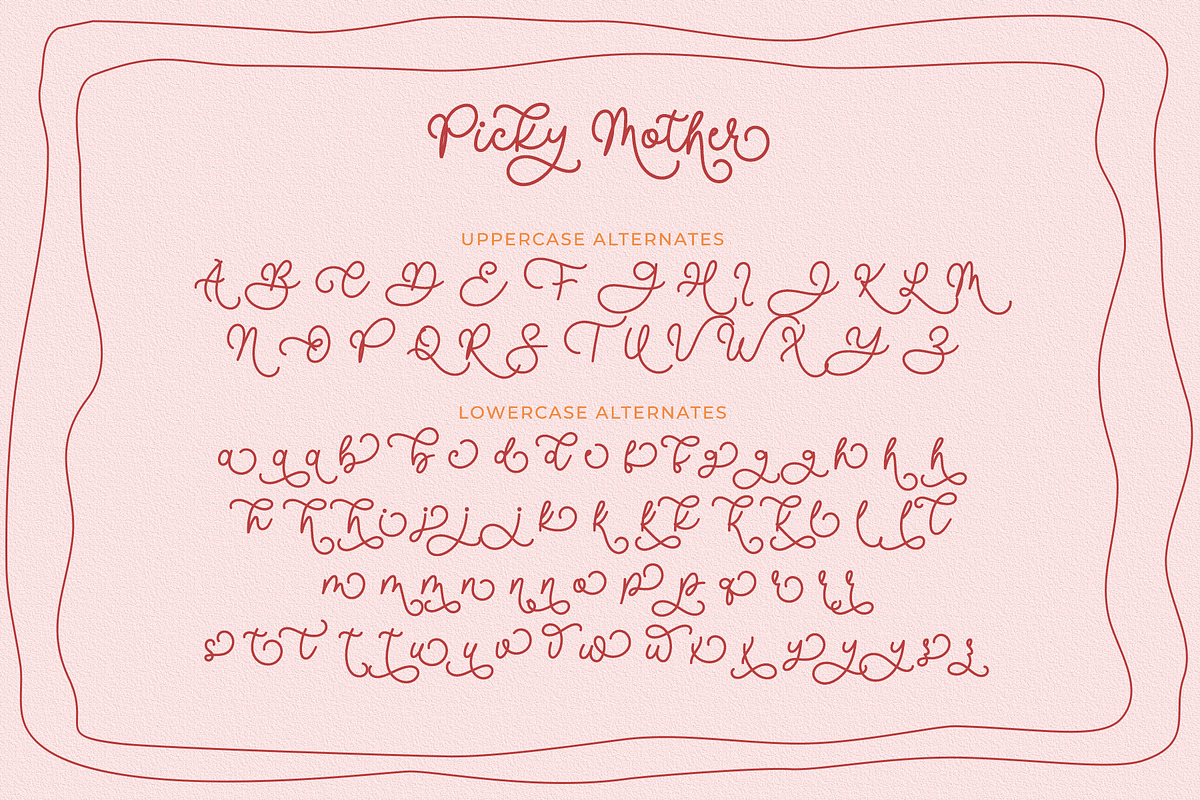 Picky Mother
UPPERCASE ALTERNATES
A B C D E F G H I J K L M
N O P Q R S T U V W X Y Z
LOWERCASE ALTERNATES
a a a b b c d d e f f g g g h h h
h h h i j j j k k k k k k l l l l
m m m n n n o p p q r r r
s t t t t u u v v w w x x y y y z z